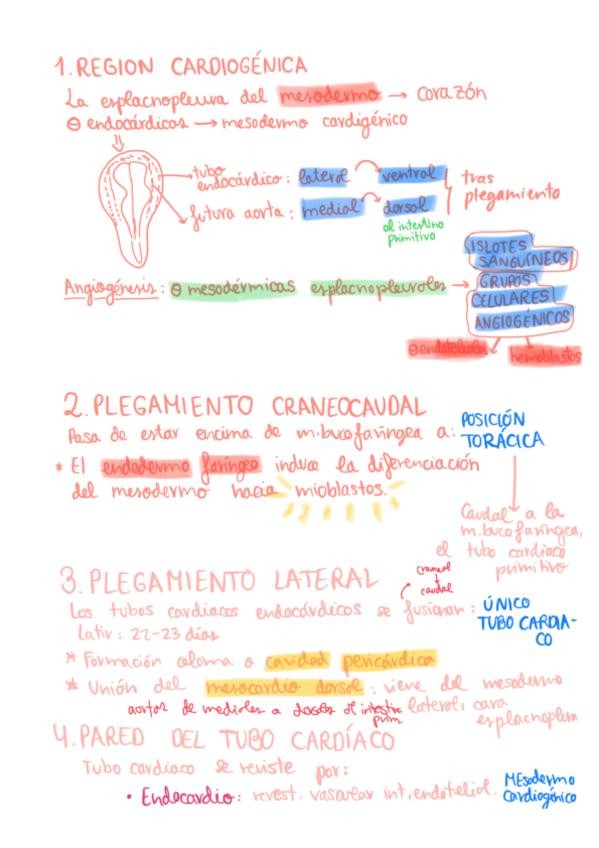 1. REGION CARDIOGÉNICA
La esplacnopleura del mesodermo → corazón
ϴ endocárdicas → mesodermo cardigénico
tubo endocárdico : lateral ventral
futura aorta : medial dorsal
al intestino primitivo
tras plegamiento
Angiogénesis : ϴ mesodérmicas esplacnopleurales →
ISLOTES
SANGUÍNEOS
GRUPOS
CELULARES
ANGIOGÉNICOS
ϴ endoteliales hemoblastos
2. PLEGAMIENTO CRANEOCAUDAL
Pasa de estar encima de m.bucofaríngea a:
POSICIÓN
TORÁCICA
* El endodermo faríngeo induce la diferenciación
del mesodermo hacia mioblastos.
Caudal a la
m.bucofaríngea,
el tubo cardiaco
primitivo
3. PLEGAMIENTO LATERAL
craneal
caudal
Los tubos cardiacos endocárdicos se fusionan :
ÚNICO
TUBO CARDIA-
CO
Latir : 22-23 días
* Formación celoma o cavidad pericárdica
* Unión del mesocardio dorsal : viene del mesodermo
lateral, cara
esplacnopleura
aortas de mediales a dorsales al intestino prim.
4. PARED DEL TUBO CARDÍACO
Tubo cardiaco se reviste por:
• Endocardio : revest. vascular int, endotelial.
MEsodermo
cardiogénico